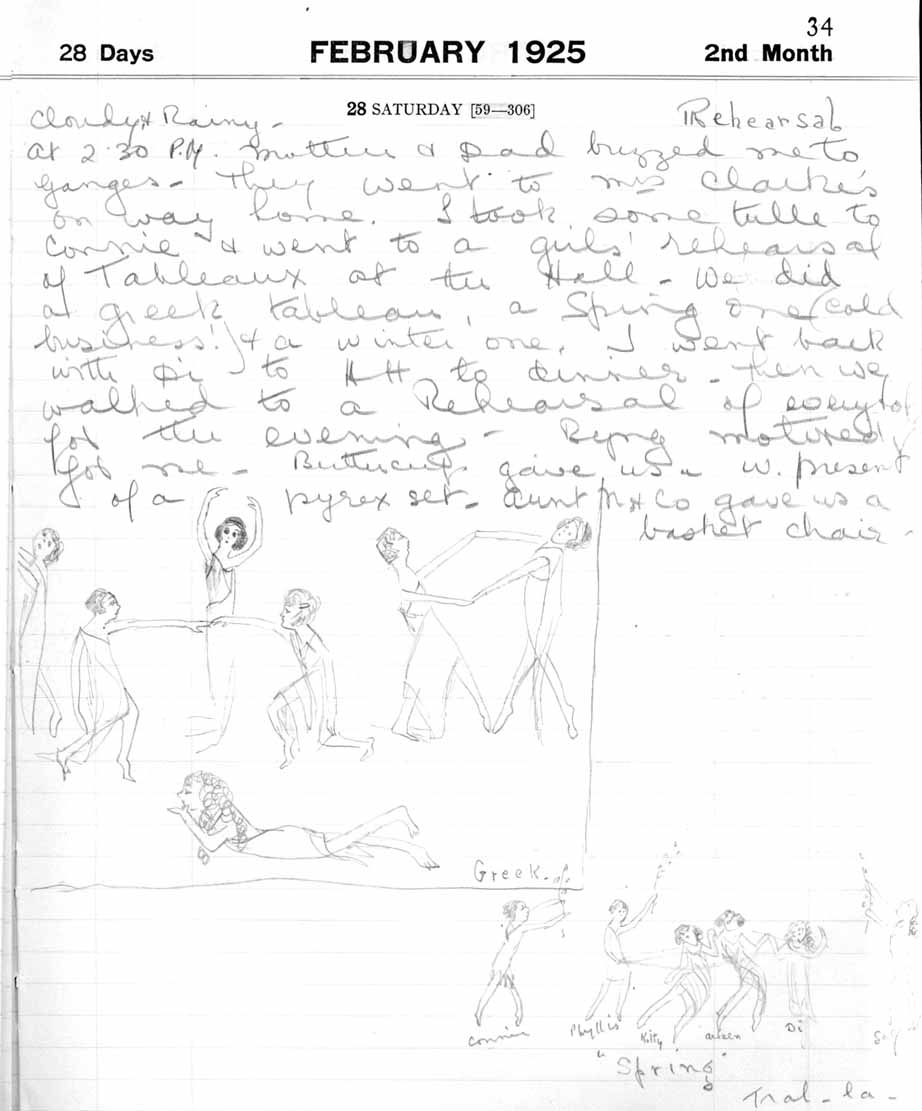 34
28 Days FEBRUARY 1925 2nd Month
28 SATURDAY [59—306]
Cloudy & Rainy - Rehearsal
At 2.30 P.M. Mother & Dad buzzed me to
Ganges - They went to Mrs Clarke's
on way home. I took some tulle to
Connie & went to a girls' rehearsal
of Tableaux at the Hall - We did
a greek tableau, a Spring one (cold
business!) & a winter one. I went back
with Di to HH to dinner - then we
walked to a Rehearsal of
for the evening - motored
for me - Buttercup gave us a w. present
of a pyrex set - Aunt N & Co gave us a
basket chair -
Greek -
Connie Phyllis Kitty Di
"Spring"
Tral - la -